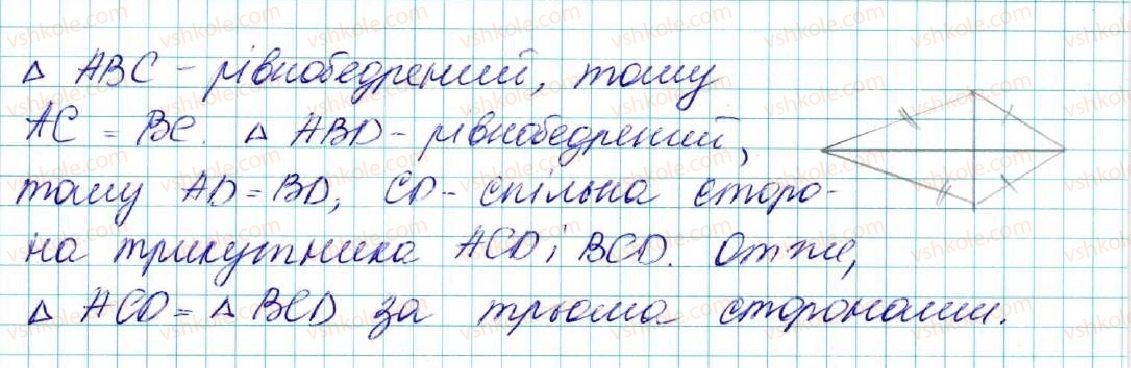 △ ABC - рівнобедрений, тому
AC = BC. △ ABD - рівнобедрений,
тому AD = BD, CD - спільна сторо-
на трикутника ACD і BCD. Отже,
△ ACD = △ BCD за трьома сторонами.